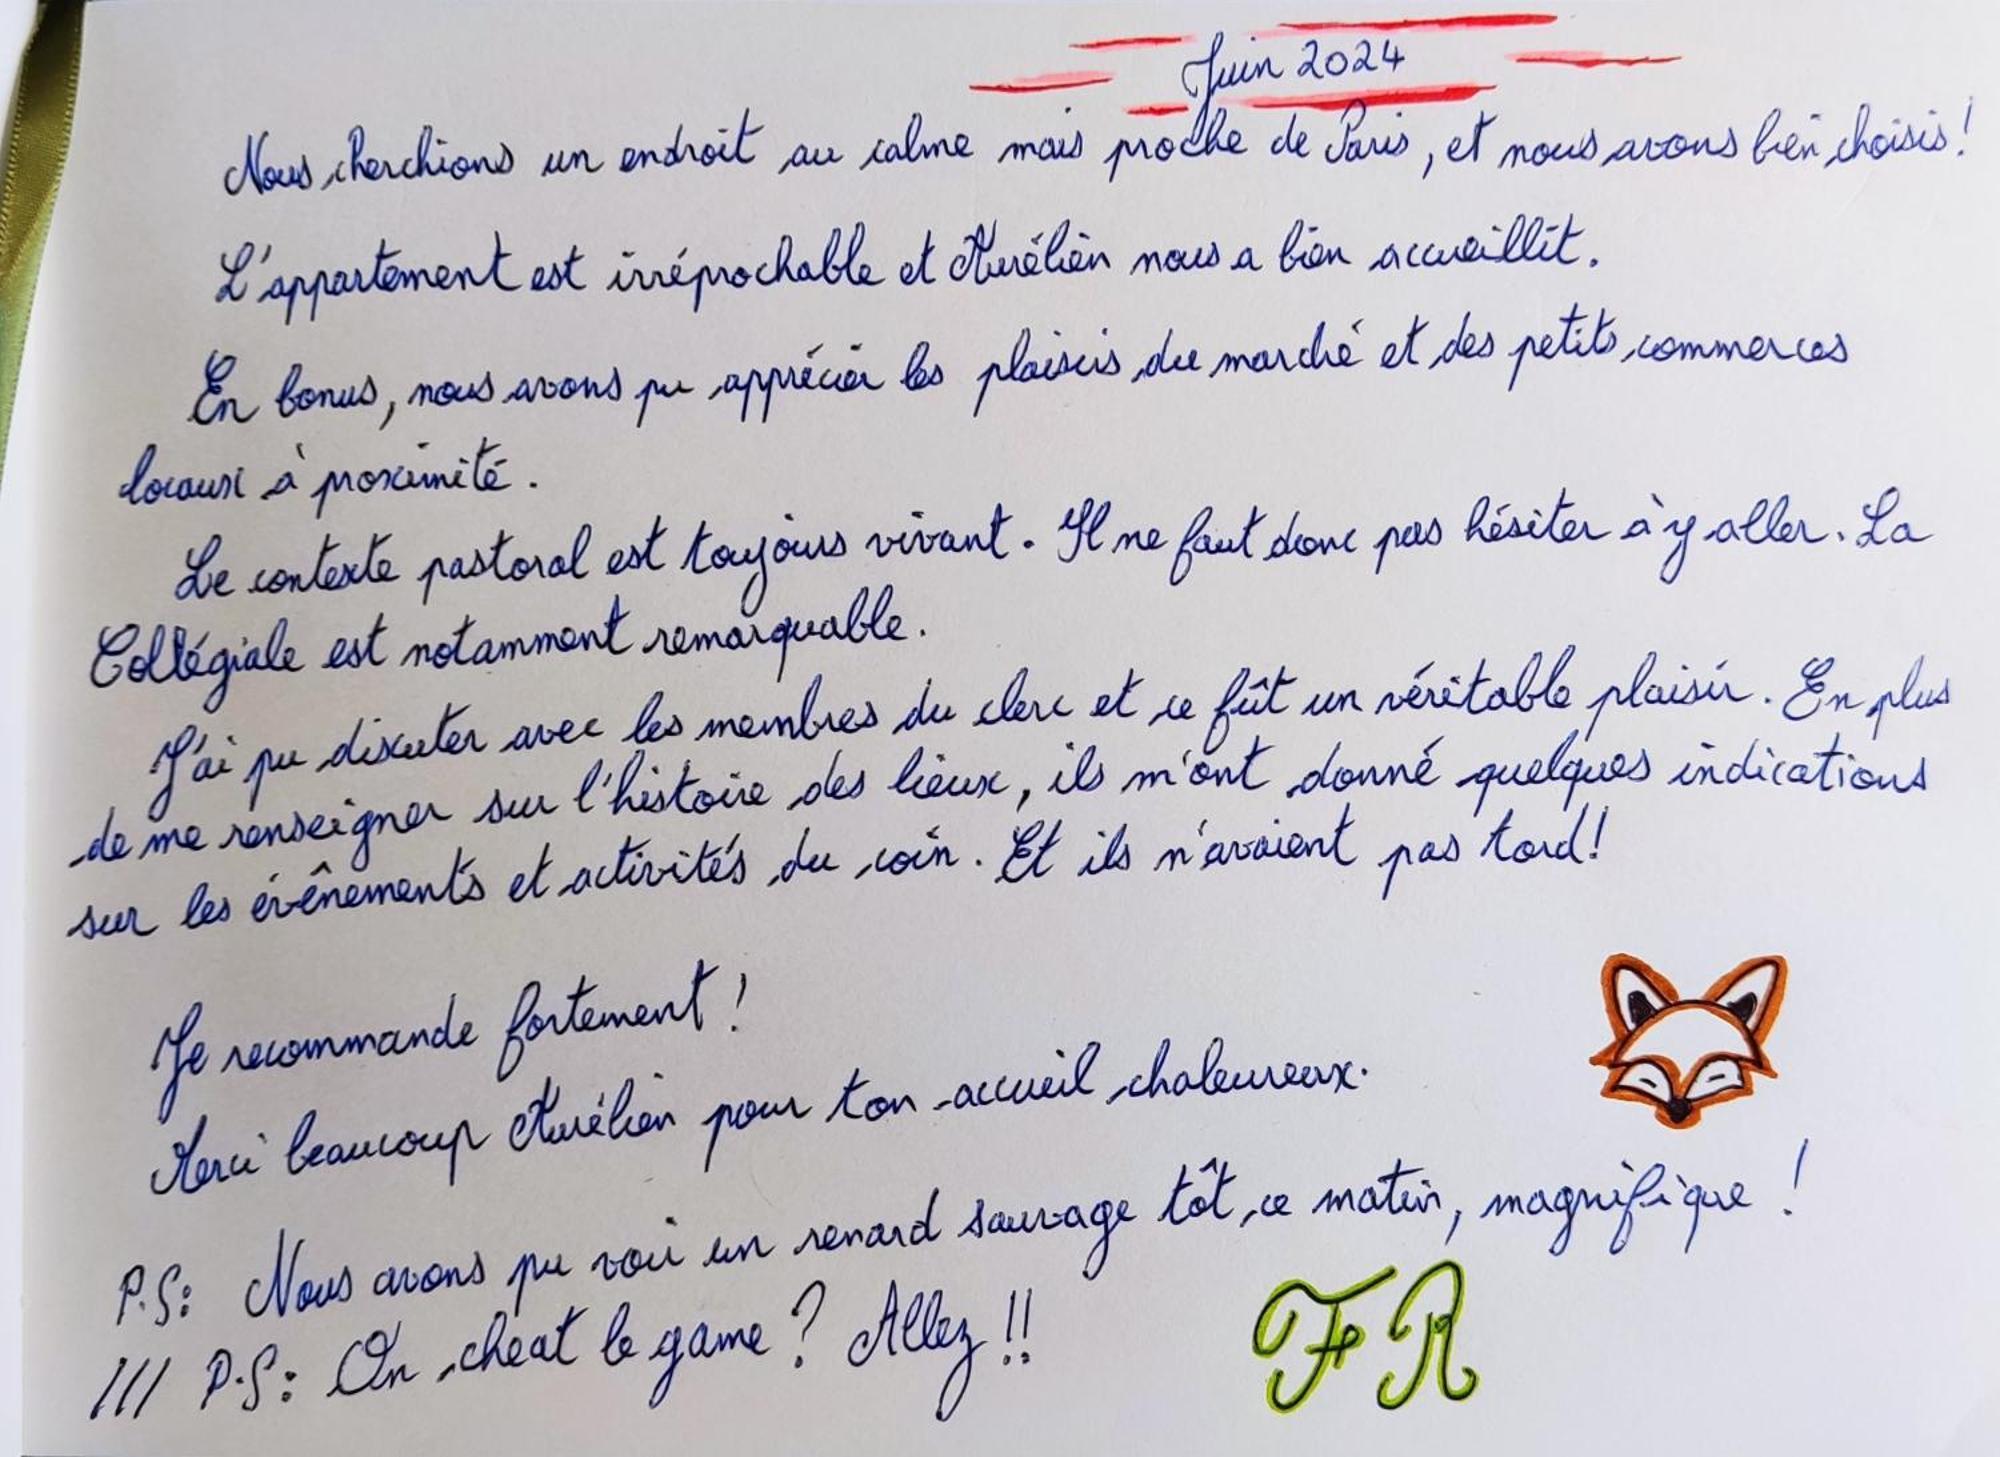 Juin 2024
Nous cherchions un endroit au calme mais proche de Paris, et nous avons bien choisis !
L'appartement est irréprochable et Aurélien nous a bien accueillit.
En bonus, nous avons pu apprécier les plaisirs du marché et des petits commerces
locaux à proximité.
Le contexte pastoral est toujours vivant. Il ne faut donc pas hésiter à y aller. La
Collégiale est notamment remarquable.
J'ai pu discuter avec les membres du clerc et ce fût un véritable plaisir. En plus
de me renseigner sur l'histoire des lieux, ils m'ont donné quelques indications
sur les évênements et activités du coin. Et ils n'avaient pas tord !
Je recommande fortement !
Merci beaucoup Aurélien pour ton accueil chaleureux.
P.S: Nous avons pu voir un renard sauvage tôt ce matin, magnifique !
/// P.S: On cheat le game ? Allez !!
FR